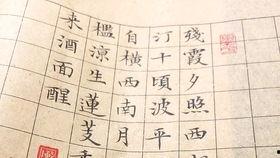 殘霞夕照西
汀十頃波平
自橫西南月
檻涼生蓮芰
來酒面醒